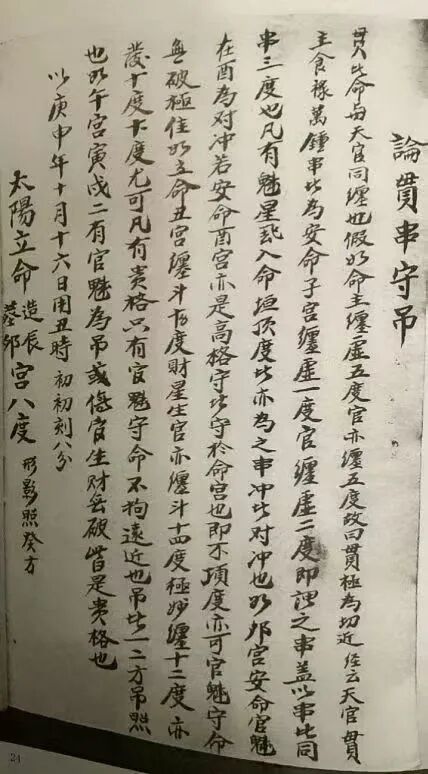 論貫串守吊
貫比命與天官同纏也假如命主纏虛五度官亦纏五度故曰貫極為切近经云天官貫
主食祿萬鍾串比為安命子宮纏虛一度官纏虛二度即謂之串盖以串比同
串三度也凡有魁星飛入命垣頂度比亦為之串冲比对冲也如卯宮安命官魁
在酉為对冲若安命酉宮亦是高格守比守於命宮也即不頂度亦可官魁守命
無破極佳如立命丑宮纏斗十度財星生官亦纏斗十四度極妙纏十二度亦
發十度下度尤可凡有贵格只有官魁守命不拘遠近也吊比一二方吊照
也如午宮寅戌二有官魁為吊或傷官生財無破皆是贵格也
以庚申年十月十六日用丑時初初刻八分
太陽立命造辰墓卯宮八度形影照癸方
24